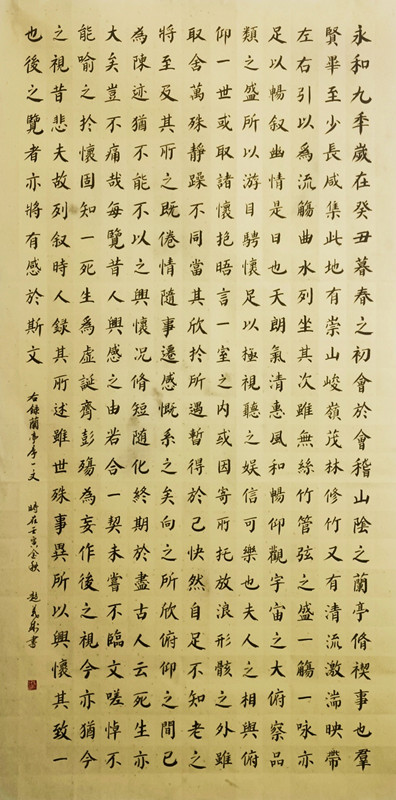 永和九秊歲在癸丑暮春之初會於會稽山陰之蘭亭脩禊事也羣
賢畢至少長咸集此地有崇山峻嶺茂林修竹又有清流激湍映帶
左右引以爲流觴曲水列坐其次雖無絲竹管弦之盛一觴一咏亦
足以暢叙幽情是日也天朗氣清惠風和暢仰觀宇宙之大俯察品
類之盛所以游目騁懷足以極視聽之娱信可樂也夫人之相與俯
仰一世或取諸懷抱晤言一室之内或因寄所托放浪形骸之外雖
取舍萬殊靜躁不同當其欣於所遇暫得於己快然自足不知老之
將至及其所之既倦情隨事遷感慨系之矣向之所欣俯仰之間已
為陳迹猶不能不以之興懷况脩短隨化終期於盡古人云死生亦
大矣豈不痛哉每覽昔人興感之由若合一契未嘗不臨文嗟悼不
能喻之於懷固知一死生爲虛誕齊彭殤為妄作後之視今亦猶今
之視昔悲夫故列叙時人録其所述雖世殊事異所以興懷其致一
也後之覽者亦將有感於斯文
右録蘭亭序一文 時在壬寅金秋 趙書